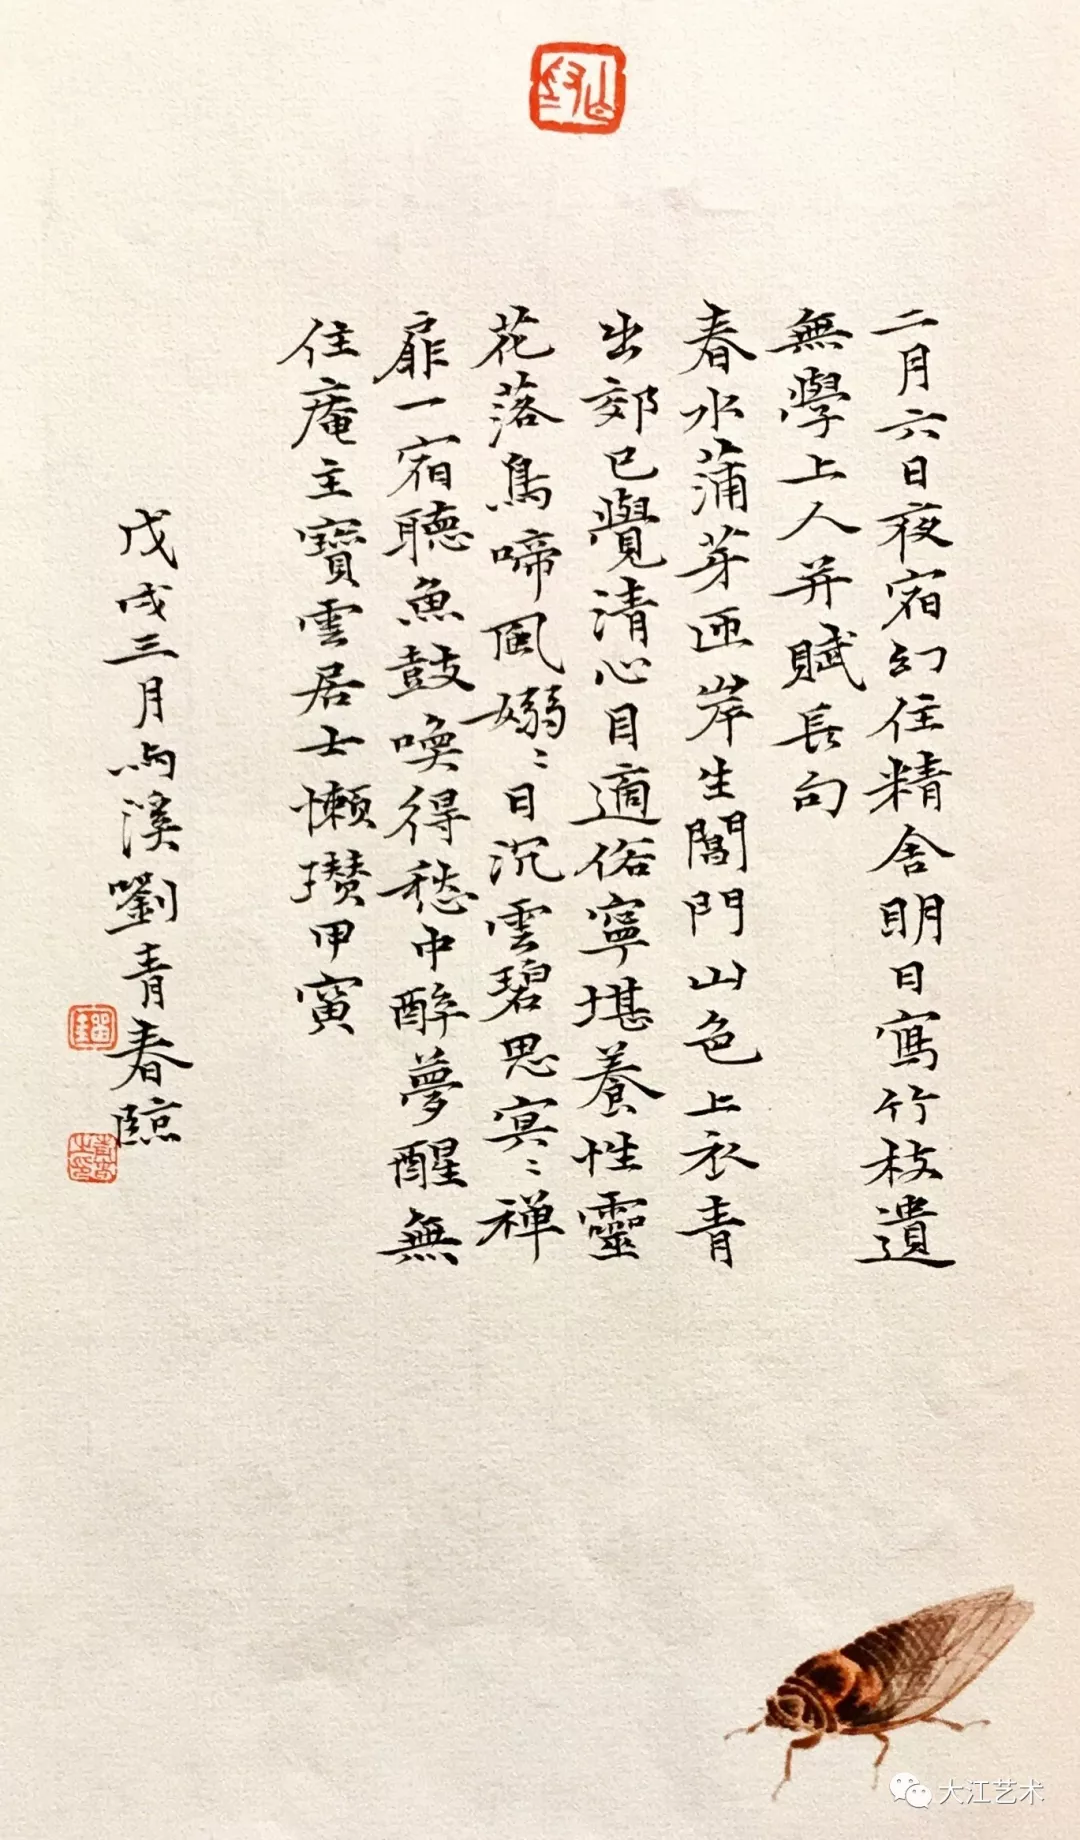 二月六日夜宿幻住精舍明日寫竹枝遺
無學上人并賦長句
春水蒲芽匝岸生閶門山色上衣青
出郊已覺清心目適俗寧堪養性靈
花落鳥啼風嫋〻日沉雲碧思冥〻禅
扉一宿聽魚鼓喚得愁中醉夢醒無
住庵主寶雲居士懶瓚甲寅
戊戌三月雨溪劉青春臨
大江艺术